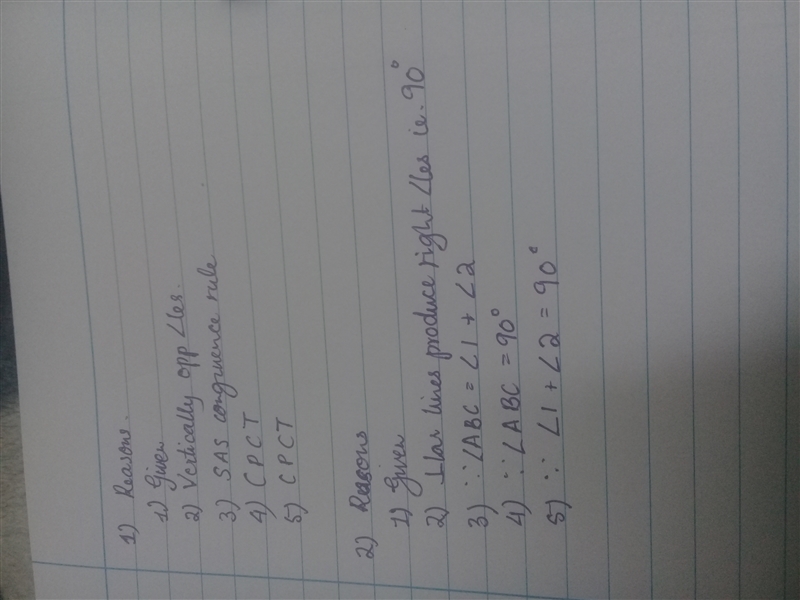 1) Reasons.
1) Given
2) Vertically opp ∠les.
3) SAS congruence rule
4) CPCT
5) CPCT
2) Reasons
1) Given
2) ⊥lar lines produce right ∠les ie. 90°
3) ∵ ∠ABC = ∠1 + ∠2
4) ∵ ∠ABC = 90°
5) ∵ ∠1 + ∠2 = 90°